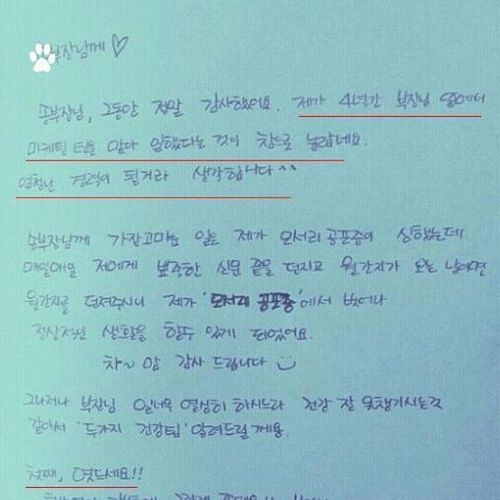 부장님께 ♡
송부장님, 그동안 정말 감사했어요. 제가 4년간 부장님 밑에서
마케팅 팀을 맡아 일했다는 것이 참으로 놀랍네요.
엄청난 경력이 될거라 생각합니다^^
송부장님께 가장고마운 일은 제가 모서리 공포증이 심했는데
매일매일 저에게 뾰족한 신문 끝을 던지고 월간지가 오는 날이면
월간지를 던져주시니 제가 '모서리 공포증'에서 벗어나
정상적인 생활을 할수 있게 되었어요.
차~암 감사 드립니다
그나저나 부장님 일너무 열심히 하시느라 건강 잘 못챙기시는것
같아서 '두가지 건강팁' 알려드릴게용.
첫째, 엿드세요!!